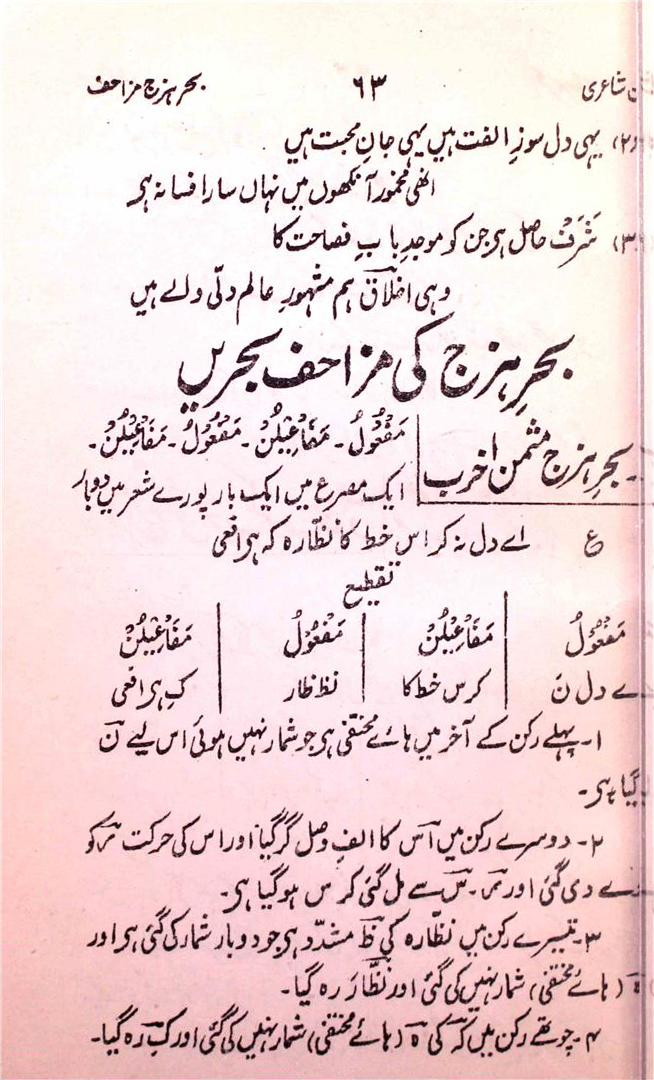 شاعری ۶۳ بحر ہزج مزاحف
(۲) یہی دل سوزِ الفت ہیں یہی جانِ محبت ہیں
انھی مخمور آنکھوں میں نہاں سارا فسانہ ہر
(۳) شَرَف حاصل ہر جن کو موجدِ بابِ فصاحت کا
وہی اخلاق ہم مشہورِ عالم دلّی والے ہیں
بحرِ ہزج کی مزاحف بحریں
بحرِ ہزج مثمن اخرب
مَفْعُوْلُ۔ مَفَاعِیْلُنْ۔ مَفْعُوْلُ۔ مَفَاعِیْلُنْ۔
ایک مصرع میں ایک بار پورے شعر میں دوبار
ع اے دل نہ کر اس خط کا نظّارہ کہ ہر افعی
تقطیع
مَفْعُوْلُ مَفَاعِیْلُنْ مَفْعُوْلُ مَفَاعِیْلُنْ
ے دل نَ کرس خط کا نظ ظار کِ ہر افعی
۱۔ پہلے رکن کے آخر میں ہائے مختفی ہر جو شمار نہیں ہوئی اس لیے نَ
گیا ہر۔
۲۔ دوسرے رکن میں اس کا الفِ وصل گر گیا اور اس کی حرکت ر کو
دی گئی اور ر۔ س سے مل گئی کر س ہو گیا ہر۔
۳۔ تیسرے رکن میں نظّارہ کی ظ مشدّد ہر جو دو بار شمار کی گئی ہر اور
ہ (ہائے مختفی) شمار نہیں کی گئی اور نظّارَ رہ گیا۔
۴۔ چوتھے رکن میں کہ کی ہ (ہائے مختفی) شمار نہیں کی گئی اور کِ رہ گیا۔